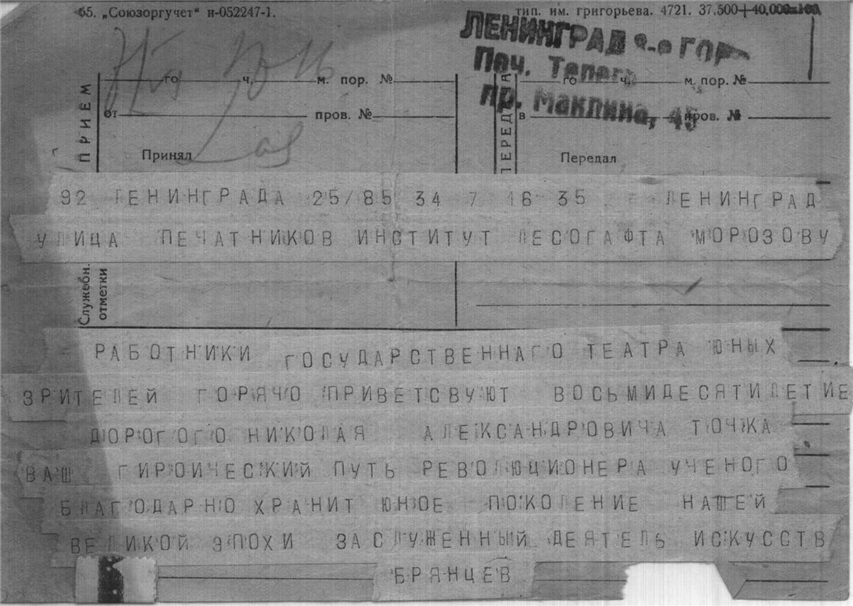 65. „Союзоргучет“ н-052247-1. тип. им. григорьева. 4721. 37.500+40.000
ЛЕНИНГРАД
Поч. Телег
пр. Маклина, 45
го ч. м. пор. №
го ч. м. пор. №
ПРИЕМ
от пров. №
ПЕРЕДАЧА
в пров. №
Принял
Передал
92 ЛЕНИНГРАДА 25/85 34 7 16 35 ЛЕНИНГРАД
УЛИЦА ПЕЧАТНИКОВ ИНСТИТУТ ЛЕСОГАФТА МОРОЗОВУ
Служебн.
отметки
РАБОТНИКИ ГОСУДАРСТВЕННАГО ТЕАТРА ЮНЫХ
ЗРИТЕЛЕЙ ГОРЯЧО ПРИВЕТСВУЮТ ВОСЬМИДЕСЯТИЛЕТИЕ
ДОРОГОГО НИКОЛАЯ АЛЕКСАНДРОВИЧА ТОЧКА
ВАШ ГИРОИЧЕСКИЙ ПУТЬ РЕВОЛЮЦИОНЕРА УЧЕНОГО
БЛАГОДАРНО ХРАНИТ ЮНОЕ ПОКОЛЕНИЕ НАШЕЙ
ВЕЛИКОЙ ЭПОХИ ЗАСЛУЖЕННЫЙ ДЕЯТЕЛЬ ИСКУССТВ
БРЯНЦЕВ